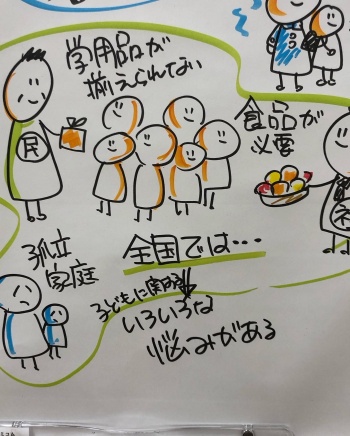 学用品が
揃えられてない
民
食品が
必要
社
孤立
家庭
全国では…
子どもに関する
いろいろな
悩みがある